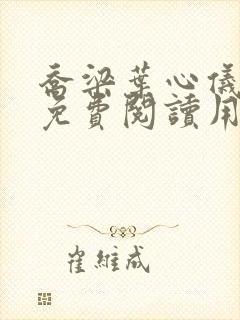 喬梁葉心儀
免費閱讀用
崔維成